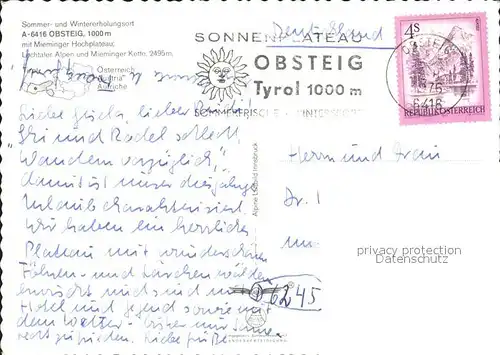 Sommer- und Wintererholungsort
A-6416 OBSTEIG, 1000 m
mit Mieminger Hochplateau,
Lechtaler Alpen und Mieminger Kette, 2495m.
Österreich
Austria
Autriche
SONNENPLATEAU
OBSTEIG
Tyrol 1000 m
SOMMERFRISCHE - WINTERSPORT
Deutschland
4S
REPUBLIK ÖSTERREICH
6416
Liebe Gerda, lieber
"Ski und Rodel schlecht
Wandern vorzüglich",
damit ist unser diesjähriger
Urlaub charakterisiert.
Wir haben ein herrliches
Plateau mit wunderschönen
Föhren- und Lärchenwäldern
erwischt und sind mit
Hotel und Jugend sowie mit
dem Wetter - bisher nur Sonne
recht zufrieden. Liebe Grüße
Herrn und Frau
Dr. I
privacy protection
Datenschutz
6245
Alpine Luftbild Innsbruck